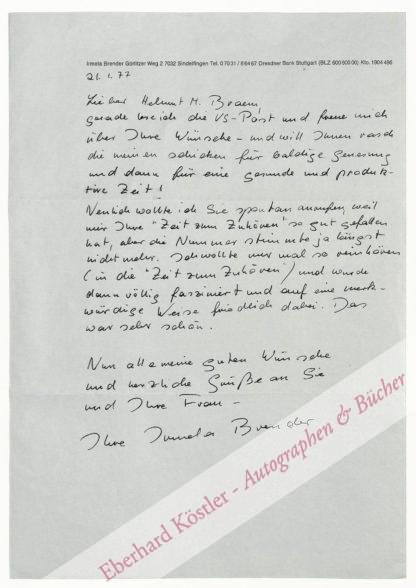 Irmela Brender Görlitzer Weg 2 7032 Sindelfingen Tel. 07031/86467 Dresdner Bank Stuttgart (BLZ 600 800 00) Kto. 1904 496
21.1.77
Lieber Helmut M. Braem,
gerade lese ich die VS-Post und freue mich
über Ihre Wünsche – und will Ihnen rasch
die meinen schicken für baldige Genesung
und dann für eine gesunde und produk-
tive Zeit!
Neulich wollte ich Sie spontan anrufen, weil
mir Ihre "Zeit zum Zuhören" so gut gefallen
hat, aber die Nummer stimmte ja längst
nicht mehr. Ich wollte nur mal so reinhören
(in die "Zeit zum Zuhören") und wurde
dann völlig fasziniert und auf eine merk-
würdige Weise friedlich dabei. Das
war sehr schön.
Nun alle meine guten Wünsche
und herzliche Grüße an Sie
und Ihre Frau –
Ihre Irmela Brender
Eberhard Köstler - Autographen & Bücher